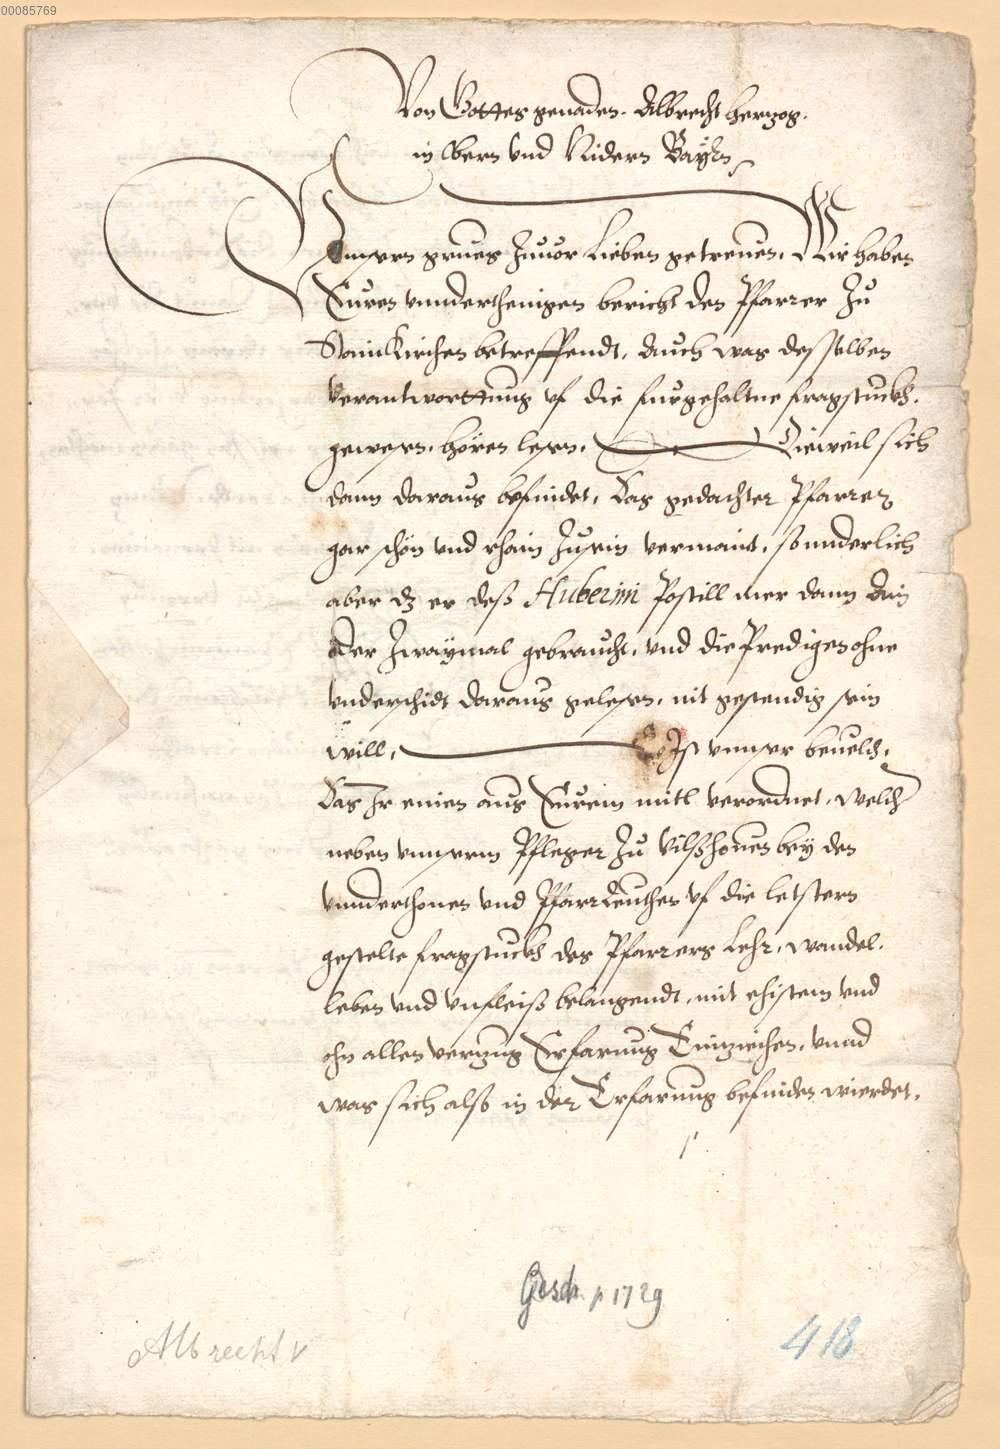 00085769
Von Gottes genaden. Albrecht hertzog.
in Obern vnd Nidern Bayrn
Vnnsern grues zuuor Lieben getreuen, Wir haben
Euren vnnderthenigen bericht den Pfarrer zu
Stainkirchen betreffendt, auch was desselben
verantwortttung vf die fürgehaltne fragstuckh.
gewesen, hören lesen, Dieweil sich
dann daraus befindet, das gedachter Pfarrer
gar schön vnd rhain zusein vermaint, sonnderlich
aber dz er deß Huberini Postill mer dann ain
oder zwaymal gebraucht, vnd die Predigen ohne
vnderschidt daraus gelesen, nit gestendig sein
will, So Ist vnnser beuelch,
das Ir einen aus Eurem mitl verordnet, welcher
neben vnnserm Pfleger zu Vilßhouen bey den
vnnderthonen vnd Pfarrleuthen vf die letstern
gestelte fragstuckh des Pfarrers Lehr, wandel,
leben vnd vnfleiß belangendt, mit ehistem vnd
ohn allen verzug Erfarung Einziehen, vnnd
was sich alß in der Erfarung befinden wierdet,
Gesch. p 1729
Albrecht V
418